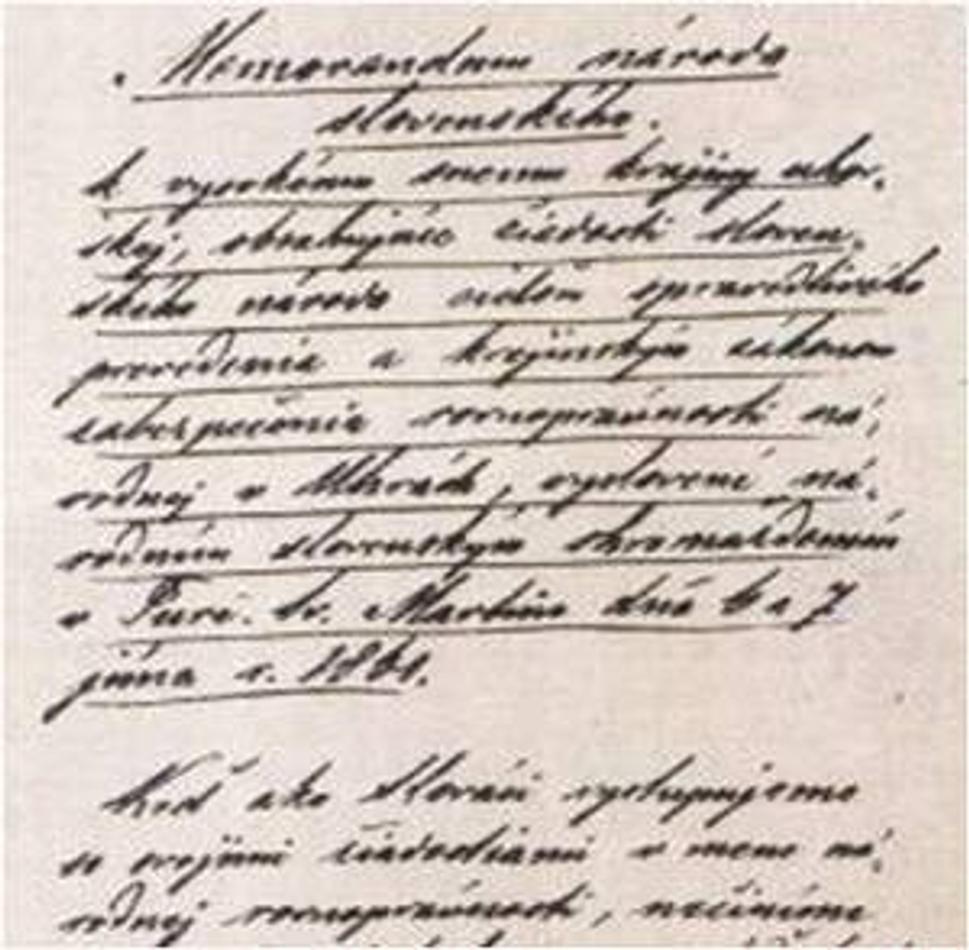 Memorandum národa
slovenského.
k vysokému snemu krajiny uhor-
skej, obsahujúce žiadosti sloven-
ského národa cieľom spravedlivého
prevedenia a krajinským zákonom
zabezpečenia rovnoprávnosti ná-
rodnej v Uhrách, vyslovené ná-
rodním slovenským shromaždením
v Turč. Sv. Martine dňa 6 a 7
júna r. 1861.
Keď ako Slováci vystupujeme
so svojimi žiadosťami v mene ná-
rodnej rovnoprávnosti, nečiníme